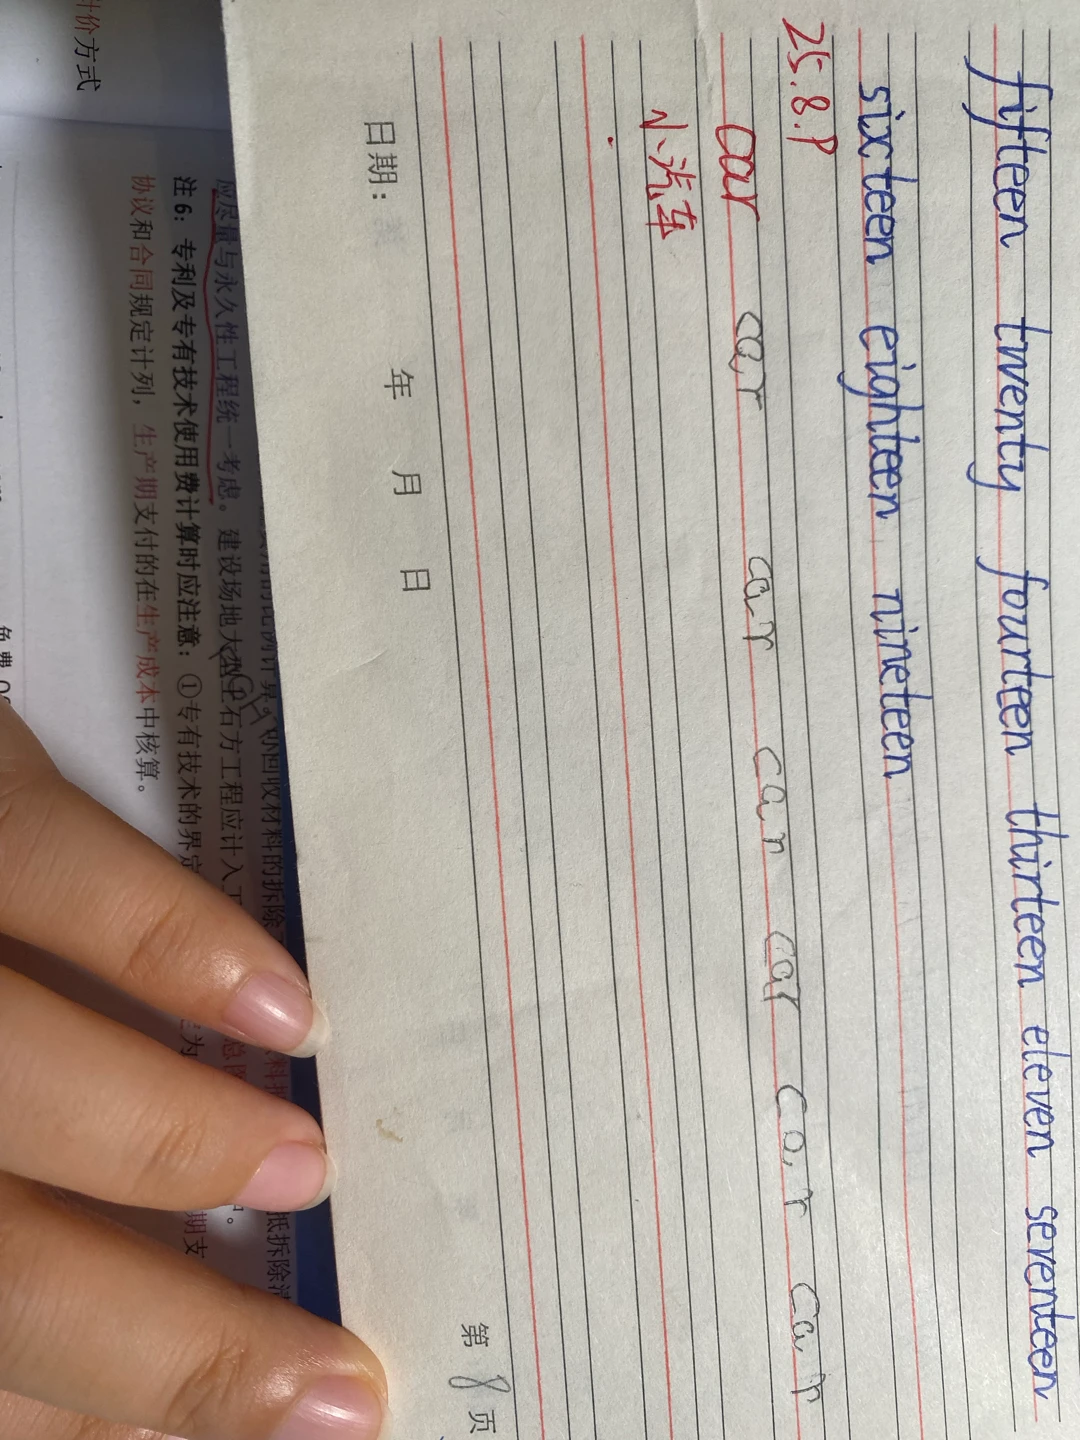 fifteen twenty fourteen thirteen eleven seventeen
sixteen eighteen nineteen
25.8.
car car car car car car car
小汽车
日期： 年 月 日
第 8 页
应尽量与永久性工程统一考虑。建设场地大型土石方工程应计入
注6：专利及专有技术使用费计算时应注意：①专有技术的界定
协议和合同规定计列，生产期支付的在生产成本中核算。
计价方式
免费